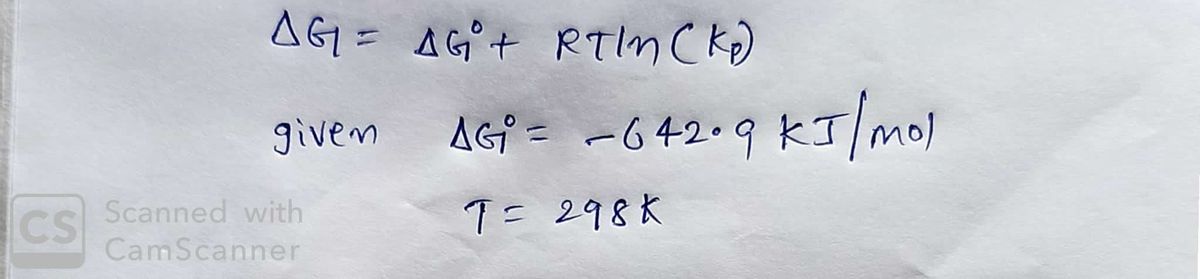 ΔG = ΔG° + RTln(Kp)
given ΔG° = -642.9 KJ/mol
T = 298K
CS Scanned with
CamScanner